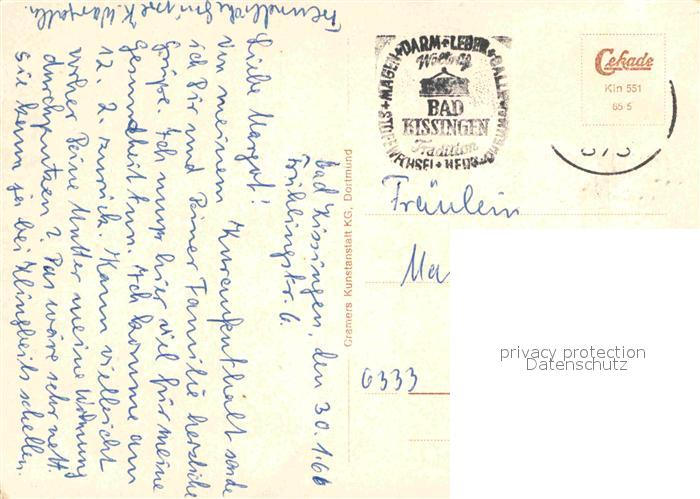 Bad Kissingen, den 30.1.66
Frühlingstr. 6.
Liebe Margot!
Von meinem Kuraufenthalt sende
ich Dir und Deiner Familie herzliche
Grüße. Ich muß hier viel für meine
Gesundheit tun. Ich komme am
12. 2. zurück. Kann vielleicht
vorher Deine Mutter meine Wohnung
durchputzen? Das wäre sehr nett.
Sie kann ja bei Klingbeils schellen.
Freundliche Grüße K.
Cramers Kunstanstalt KG, Dortmund
MAGEN + DARM + LEBER + GALLE
STOFFWECHSEL + HERZ + RHEUMA
BAD
KISSINGEN
Tradition
Cekade
Kin 551
65 5
Fräulein
Ma
6333
privacy protection
Datenschutz